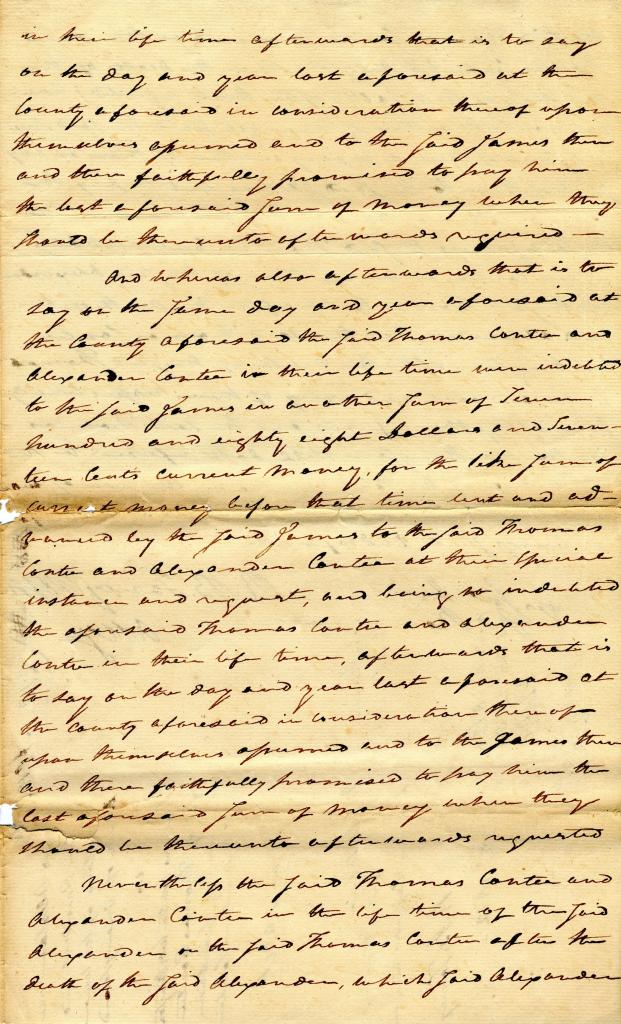 in their life time afterwards that is to say
on the day and year last aforesaid at the
County aforesaid in consideration thereof upon
themselves assumed and to the said James then
and there faithfully promised to pay him
the last aforesaid sum of money when they
should be thereunto afterwards required —
And whereas also afterwards that is to
say on the same day and year aforesaid at
the County aforesaid the said Thomas Contee and
Alexander Contee in their life time were indebted
to the said James in another sum of Seven
hundred and eighty eight Dollars and Seven-
teen Cents current money, for the like sum of
current money before that time lent and ad-
vanced by the said James to the said Thomas
Contee and Alexander Contee at their special
instance and request, and being so indebted
the aforesaid Thomas Contee and Alexander
Contee in their life time, afterwards that is
to say on the day and year last aforesaid at
the County aforesaid in consideration thereof
upon themselves assumed and to the James then
and there faithfully promised to pay him the
last aforesaid sum of money when they
should be thereunto afterwards requested
Nevertheless the said Thomas Contee and
Alexander Contee in the life time of the said
Alexander or the said Thomas Contee after the
death of the said Alexander, which said Alexander